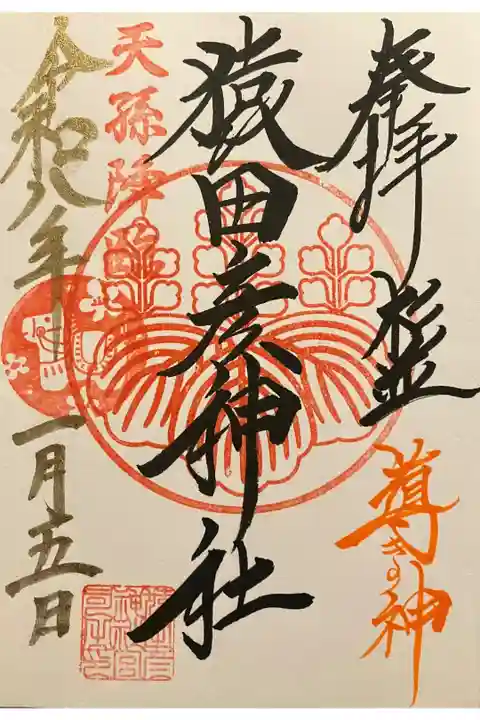 奉拝 杉並
導きの神
猿田彦神社
天孫降臨
令和八年一月五日